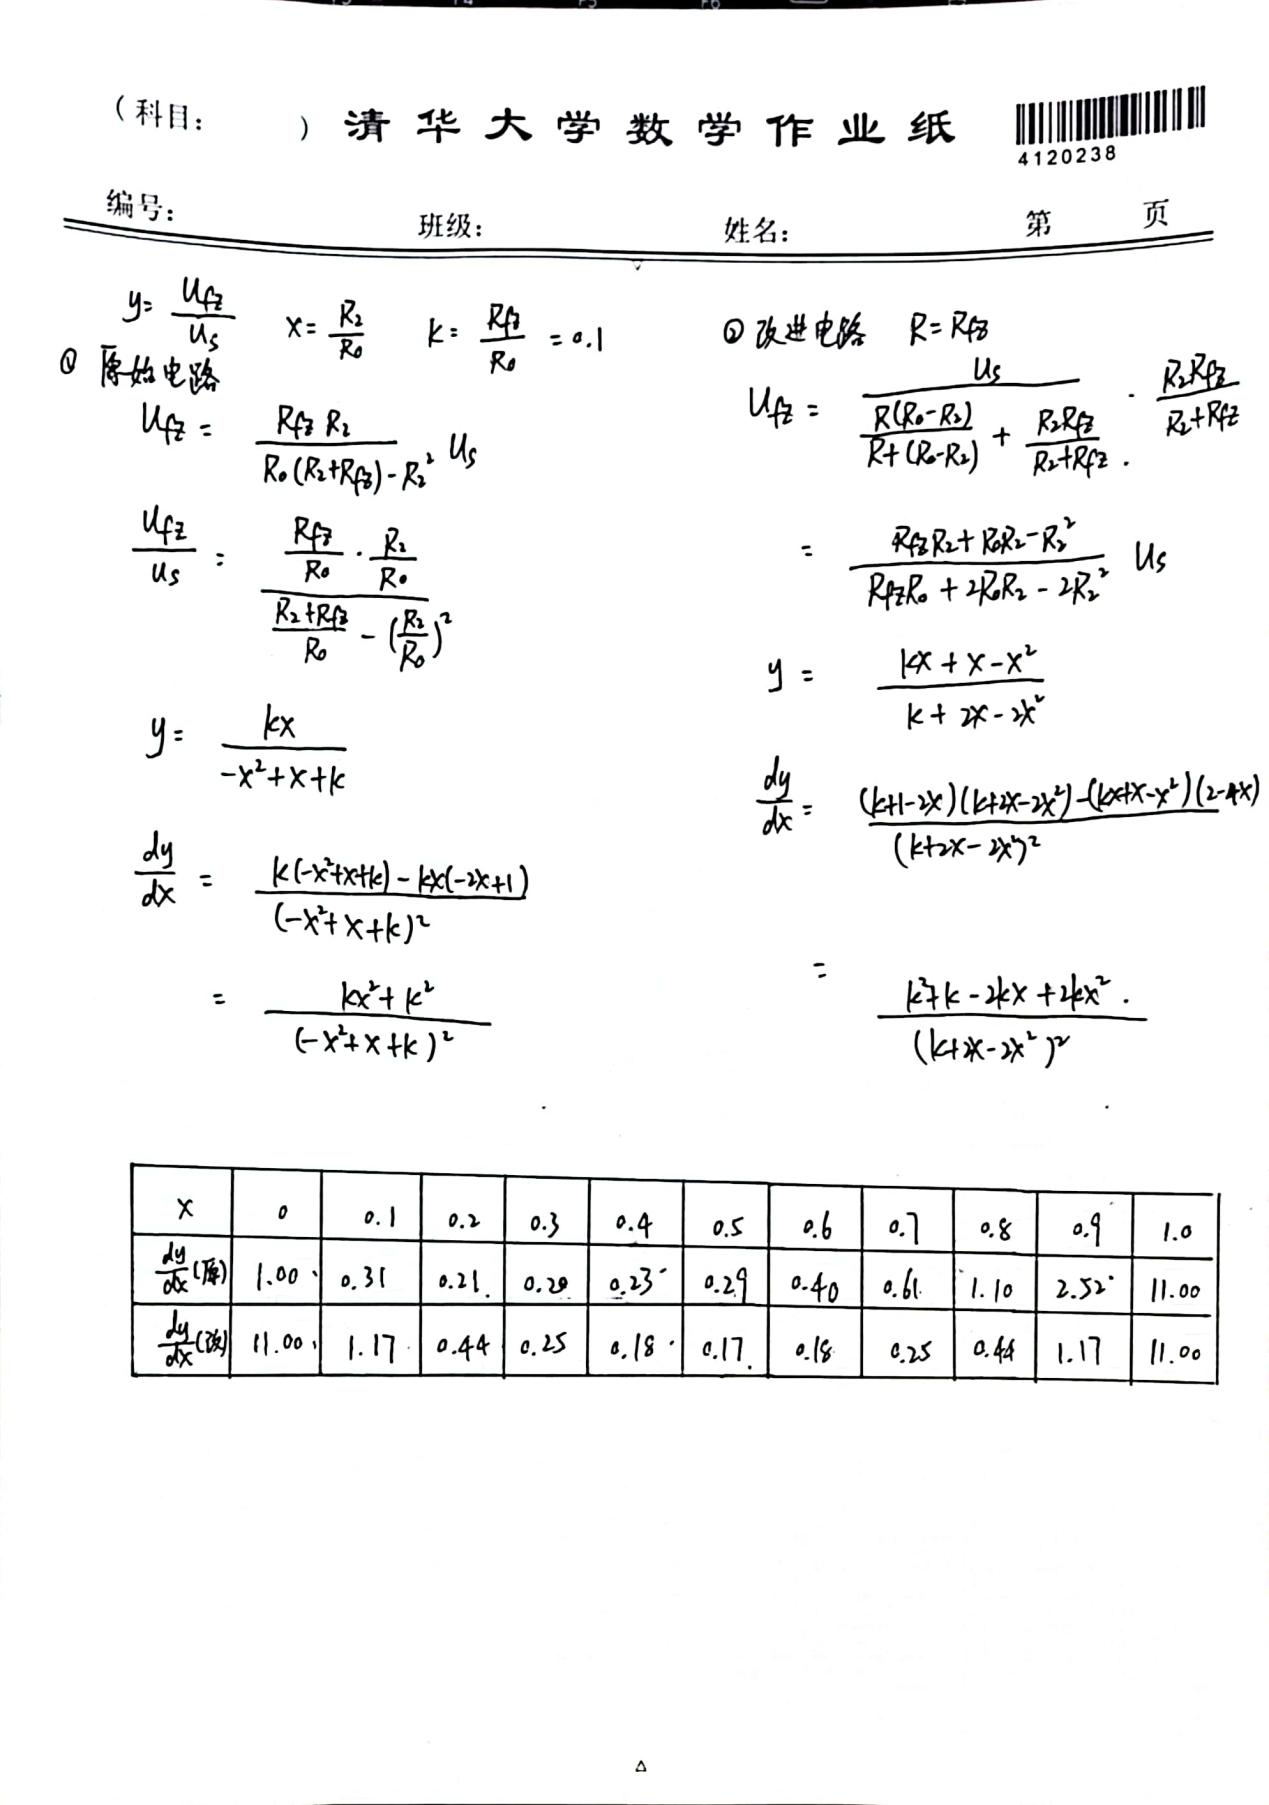 （科目： ）清华大学数学作业纸
4120238
编号： 班级： 姓名： 第 页
y = Ufz/Us x = R2/R0 k = Rfz/R0 = 0.1
① 原始电路
Ufz = (Rfz R2)/(R0(R2+Rfz)-R2²) Us
Ufz/Us = (Rfz/R0 · R2/R0)/((R2+Rfz)/R0 - (R2/R0)²)
y = kx/(-x²+x+k)
dy/dx = (k(-x²+x+k)-kx(-2x+1))/(-x²+x+k)²
= (kx²+k²)/(-x²+x+k)²
② 改进电路 R=Rfz
Ufz = Us/(R(R0-R2)/(R+(R0-R2)) + R2Rfz/(R2+Rfz)) · R2Rfz/(R2+Rfz)
= (RfzR2+R0R2-R2²)/(RfzR0+2R0R2-2R2²) Us
y = (kx+x-x²)/(k+2x-2x²)
dy/dx = ((k+1-2x)(k+2x-2x²)-(kx+x-x²)(2-4x))/(k+2x-2x²)²
= (k²+k-2kx+2kx²)/(k+2x-2x²)²
x 0 0.1 0.2 0.3 0.4 0.5 0.6 0.7 0.8 0.9 1.0
dy/dx(原) 1.00 0.31 0.21 0.20 0.23 0.29 0.40 0.61 1.10 2.52 11.00
dy/dx(改) 11.00 1.17 0.44 0.25 0.18 0.17 0.18 0.25 0.44 1.17 11.00